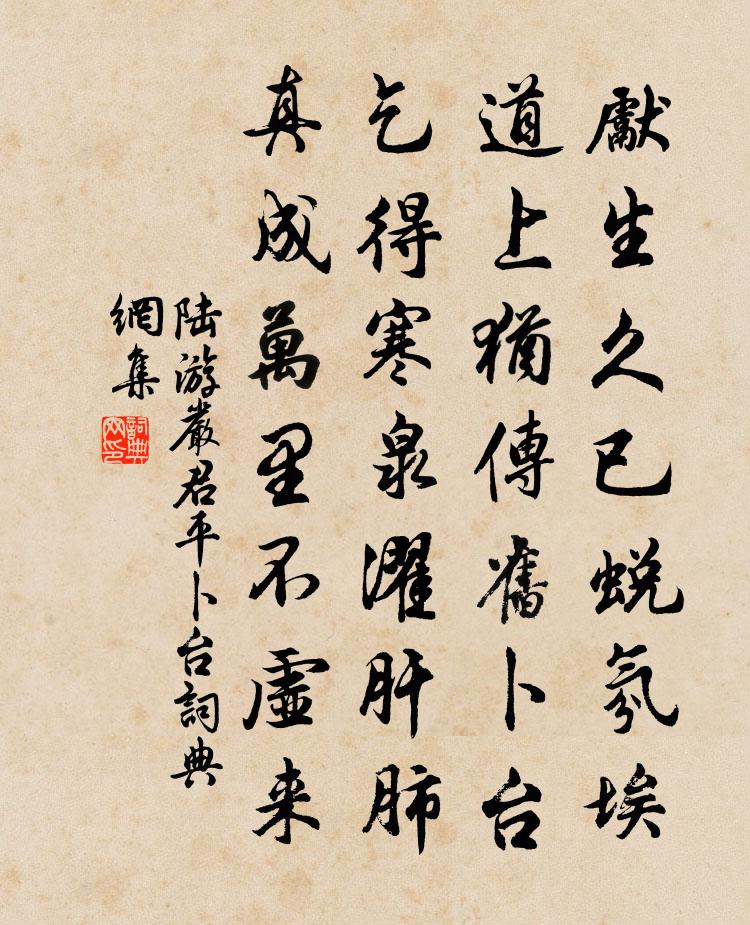 獻生久已蜕氛埃
道上猶傳舊卜台
乞得寒泉濯肝肺
真成萬里不虛来
陆游嚴君平卜台詞典
網集
詞典网印